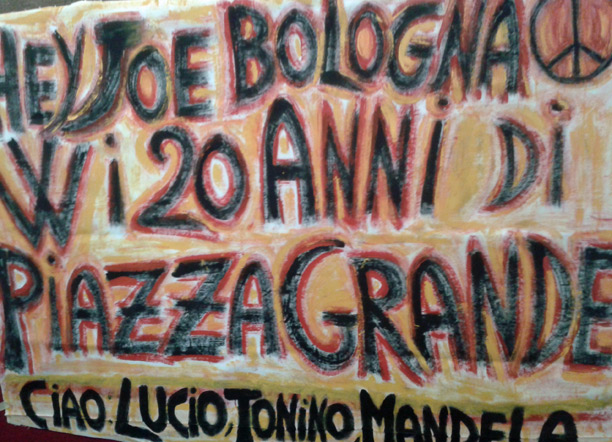 HEY JOE BOLOGNA
W i 20 ANNi Di
PiAZZA GRANDE
CiAO: LUCiO, TONiNO, MANDELA